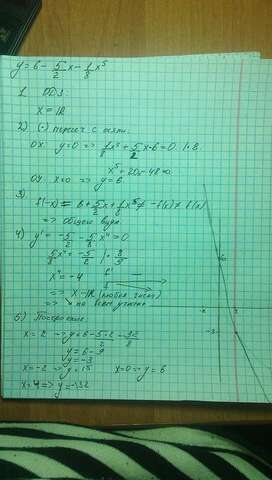 y = 6 - 5/2 x - 1/8 x⁵
1. ОДЗ:
X = ℝ
2) (·) пересеч с осями.
OX: y=0 => 1/8 x⁵ + 5/2 x - 6 = 0 | · 8
x⁵ + 20x - 48 = 0
OY: x=0 => y = 6
3)
f(-x) = 6 + 5/2 x + 1/8 x⁵ ≠ -f(x) ≠ f(x)
=> общего вида
4) y' = -5/2 - 5/8 x⁴ = 0
5/8 x⁴ = -5/2 | · 8/5
x⁴ = -4
f' -
f
=> X - ℝ (любое число)
=> ↘ на всей
5) Построение
x = 2 => y = 6 - 5·2/2 - 32/8
y = 6 - 9
y = -3
x = -2 => y = 15 x=0 => y = 6
x = 4 => y = -132
6
-2
2
-3